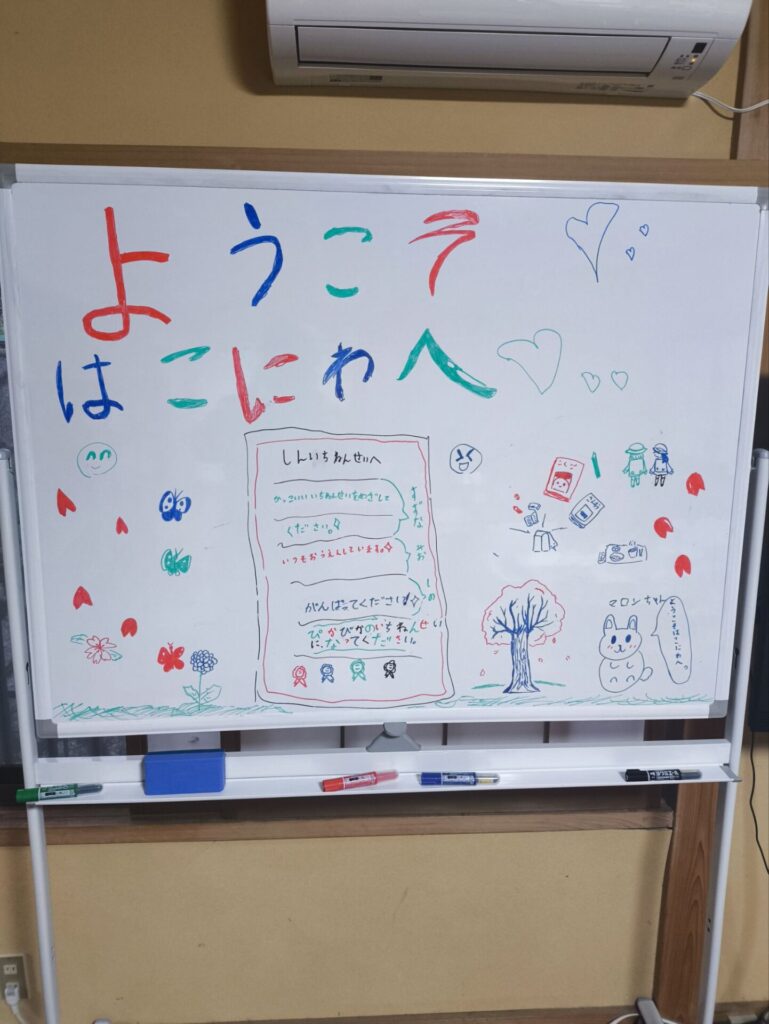 ようこそ
はこにわへ
しんいちねんせいへ
かっこいいいちねんせいをめざして
ください。
すずな
いつもおうえんしています。
みお
がんばってください!
しの
ぴかぴかのいちねんせい
に、なってください。
こくご
さんすう
マロンちゃん
ようこそはこにわへっ